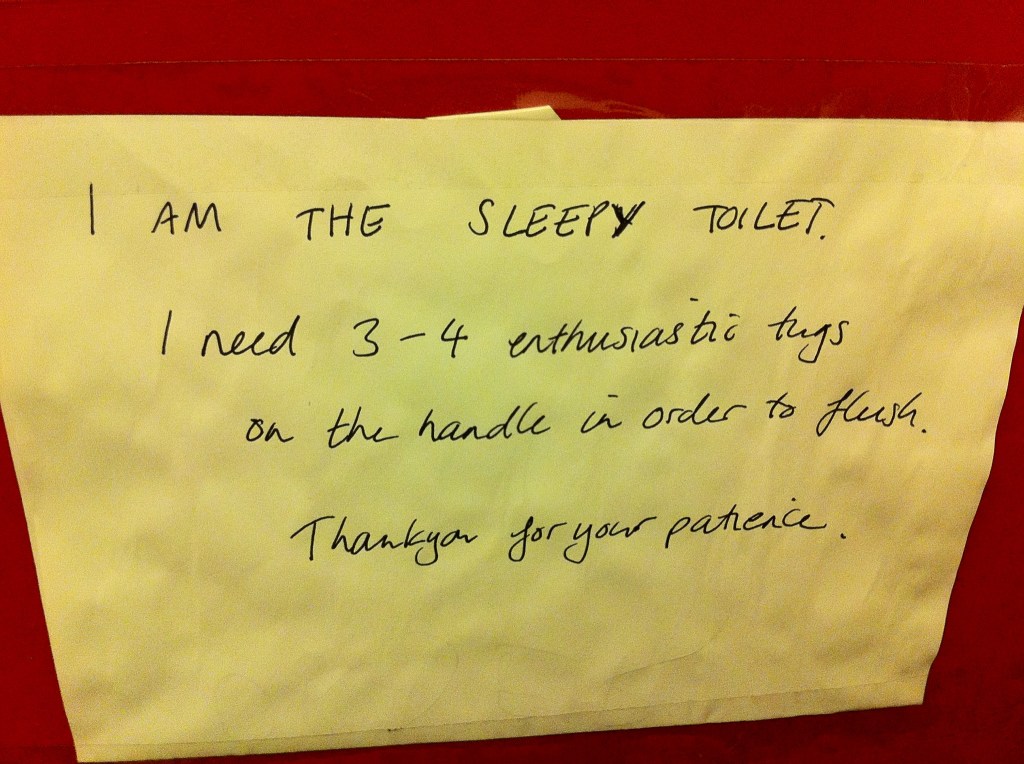 I AM THE SLEEPY TOILET.
I need 3-4 enthusiastic tugs
on the handle in order to flush.
Thankyou for your patience.